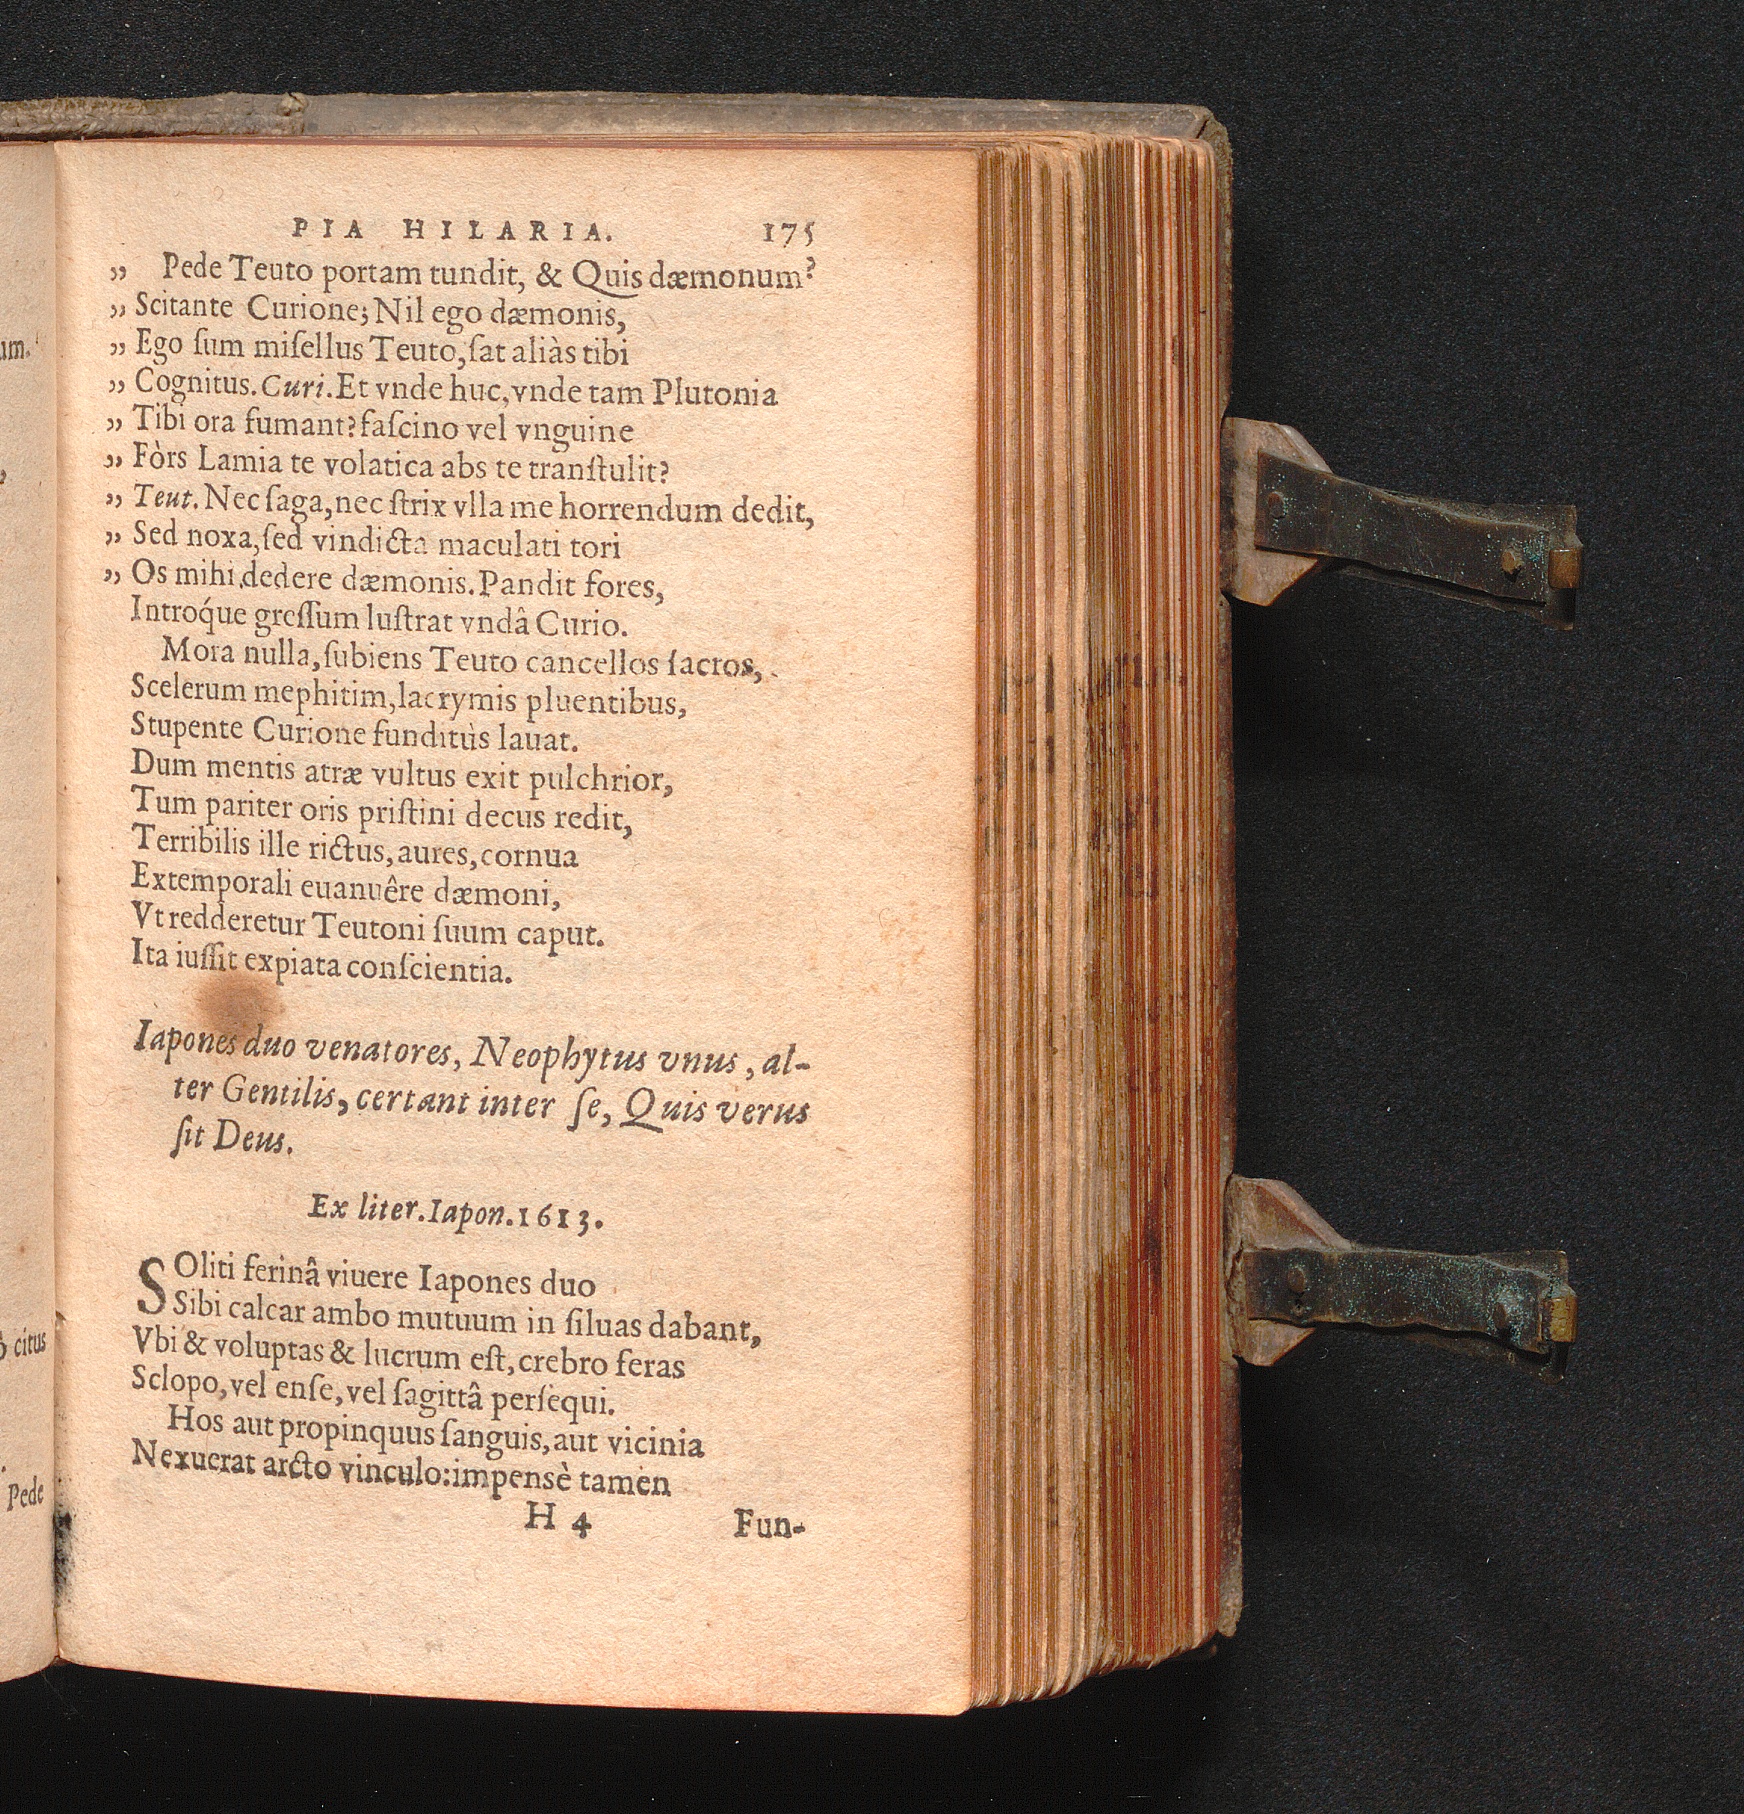 PIA HILARIA. 175
„ Pede Teuto portam tundit, & Quis dæmonum?
„ Scitante Curione; Nil ego dæmonis,
„ Ego ſum miſellus Teuto, ſat aliàs tibi
„ Cognitus. Curi. Et vnde huc, vnde tam Plutonia
„ Tibi ora fumant? faſcino vel vnguine
„ Fòrs Lamia te volatica abs te tranſtulit?
„ Teut. Nec ſaga, nec ſtrix vlla me horrendum dedit,
„ Sed noxa, ſed vindicta maculati tori
„ Os mihi dedere dæmonis. Pandit fores,
Introq́ue greſſum luſtrat vndâ Curio.
Mora nulla, ſubiens Teuto cancellos ſacros,
Scelerum mephitim, lacrymis pluentibus,
Stupente Curione funditùs lauat.
Dum mentis atræ vultus exit pulchrior,
Tum pariter oris priſtini decus redit,
Terribilis ille rictus, aures, cornua
Extemporali euanuêre dæmoni,
Vt redderetur Teutoni ſuum caput.
Ita iuſſit expiata conſcientia.
Iapones duo venatores, Neophytus vnus, al-
ter Gentilis, certant inter ſe, Quis verus
ſit Deus.
Ex liter. Iapon. 1613.
SOliti ferinâ viuere Iapones duo
Sibi calcar ambo mutuum in ſiluas dabant,
Vbi & voluptas & lucrum eſt, crebro feras
Sclopo, vel enſe, vel ſagittâ perſequi.
Hos aut propinquus ſanguis, aut vicinia
Nexuerat arcto vinculo: impensè tamen
H 4 Fun-
um.
citus
Pede